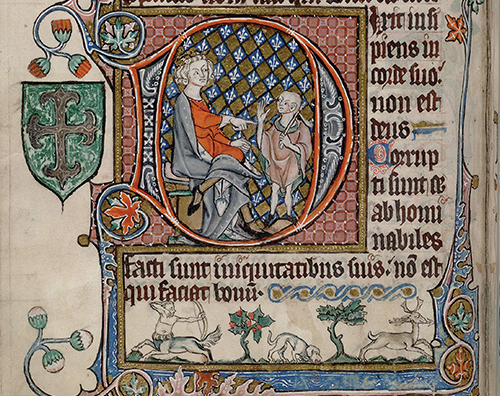 Dixit insi
piens in
corde suo
non est
deus
Corrup
ti sunt et
abhomi
nabiles
facti sunt iniquitatibus suis. nō est
qui faciat bonū.